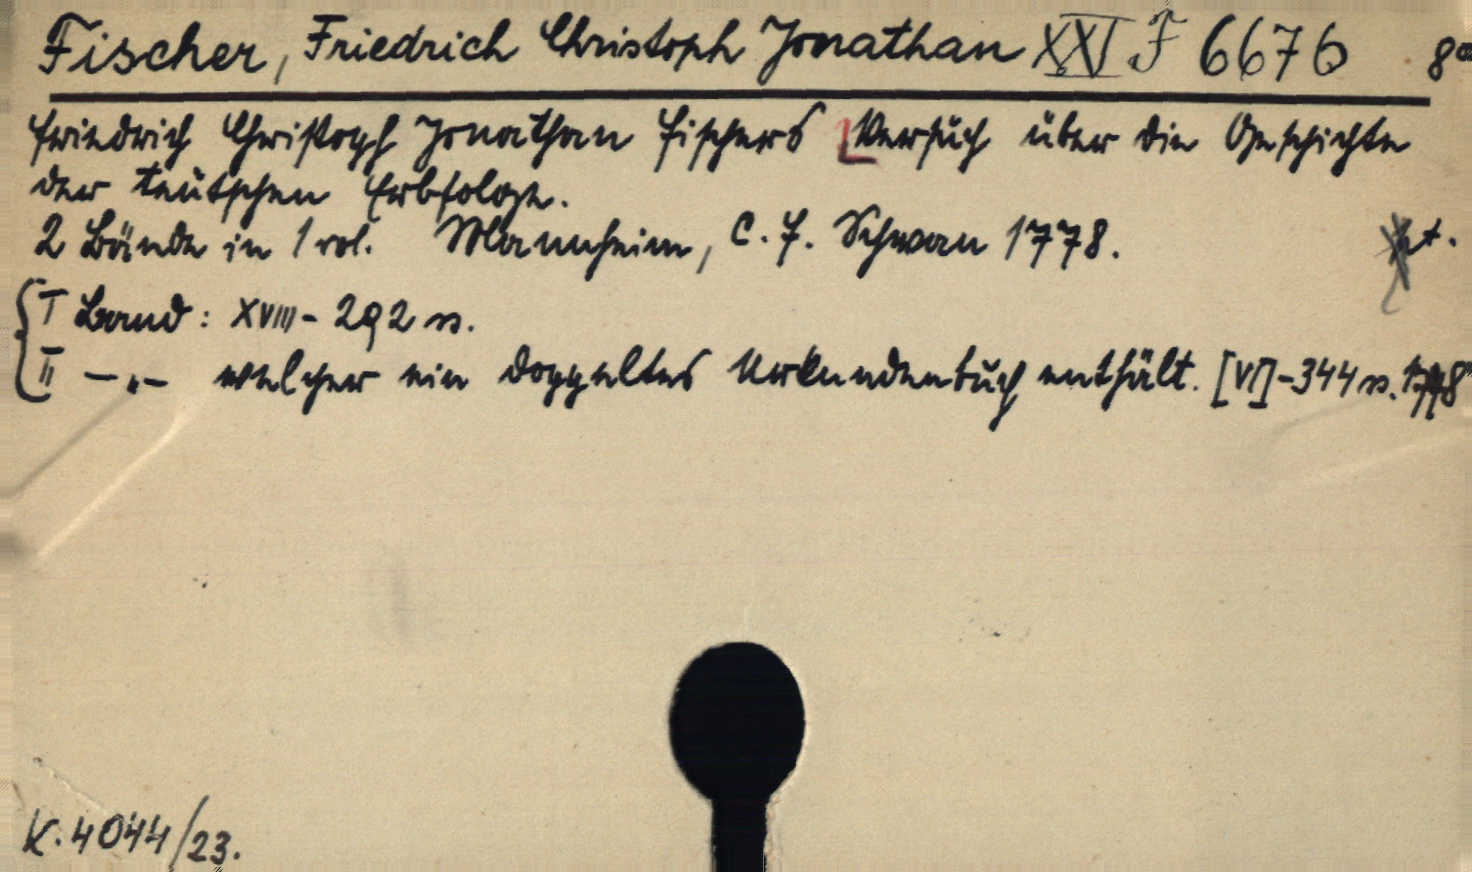 Fischer, Friedrich Christoph Jonathan XXI F 6676 8°
Friedrich Christoph Jonathan Fischers Versuch über die Geschichte
der teutschen Erbfolge.
2 Bände in 1 vol. Mannheim, C. F. Schwan 1778.
I Band: XVIII-292 s.
II -„- welcher ein doppeltes Urkundenbuch enthält. [VI]-344 s. 1778
K. 4044/23.